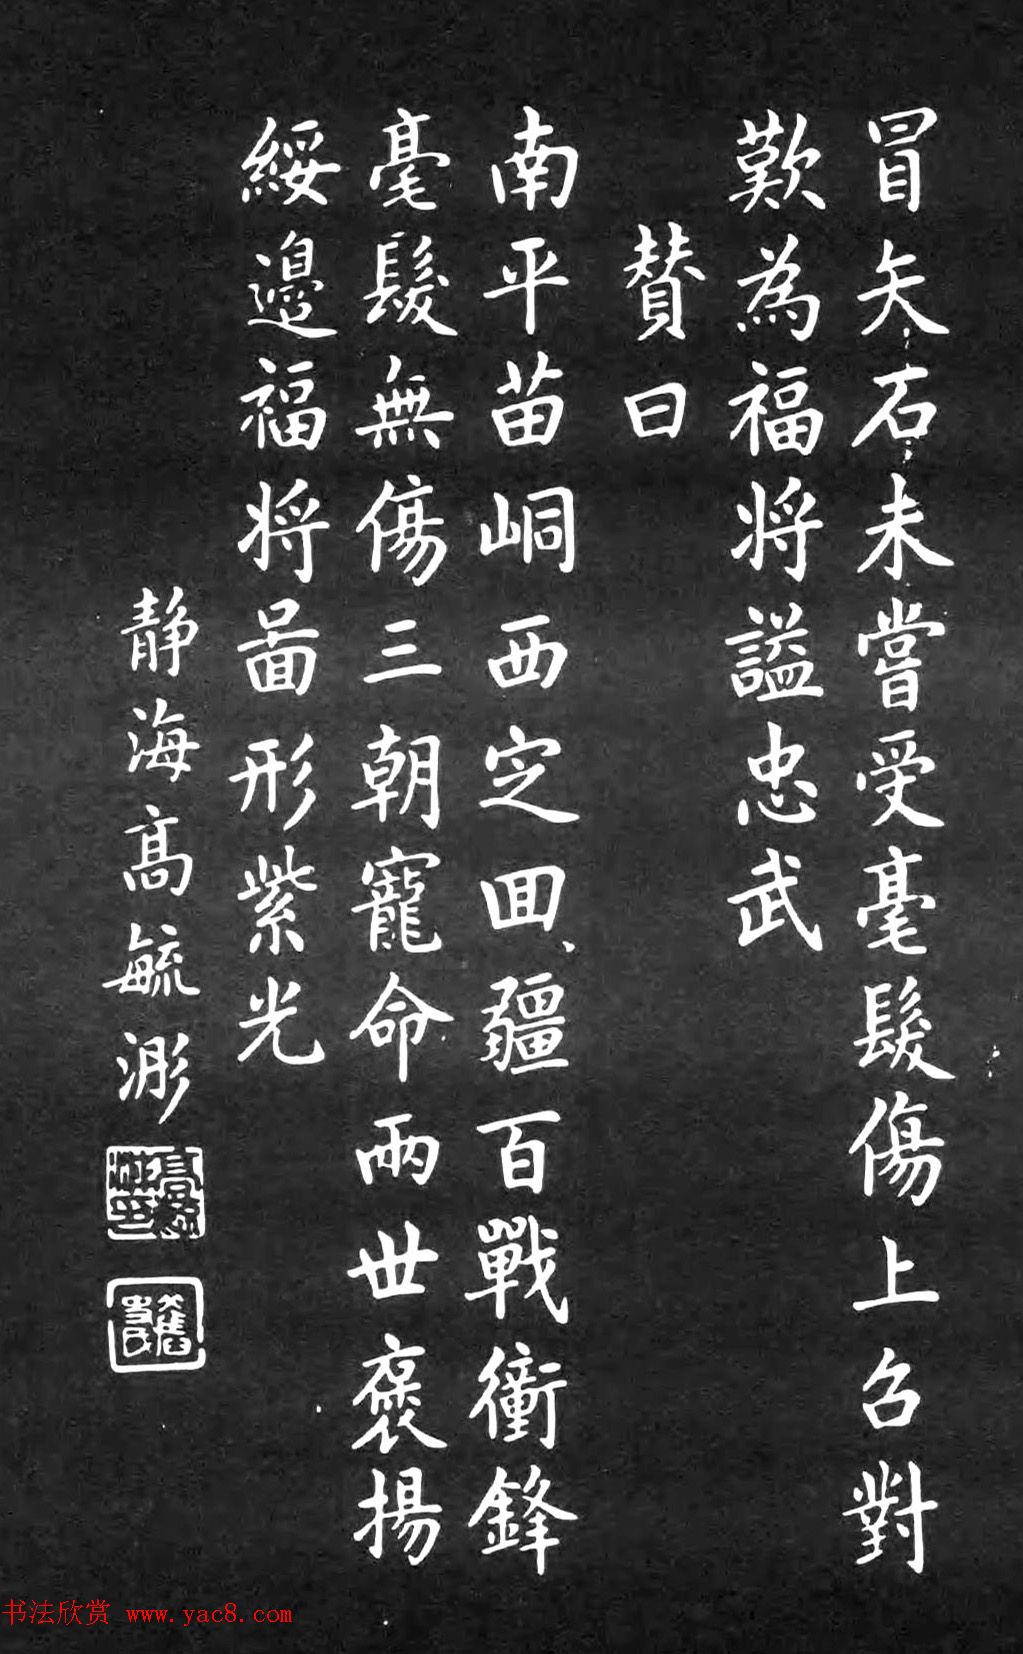 冒矢石未嘗受毫髮傷上召對
歎為福將謚忠武
贊曰
南平苗峒西定回疆百戰衝鋒
毫髮無傷三朝寵命兩世褒揚
綏邊福將啚形紫光
静海高毓浵
书法欣赏 www.yac8.com